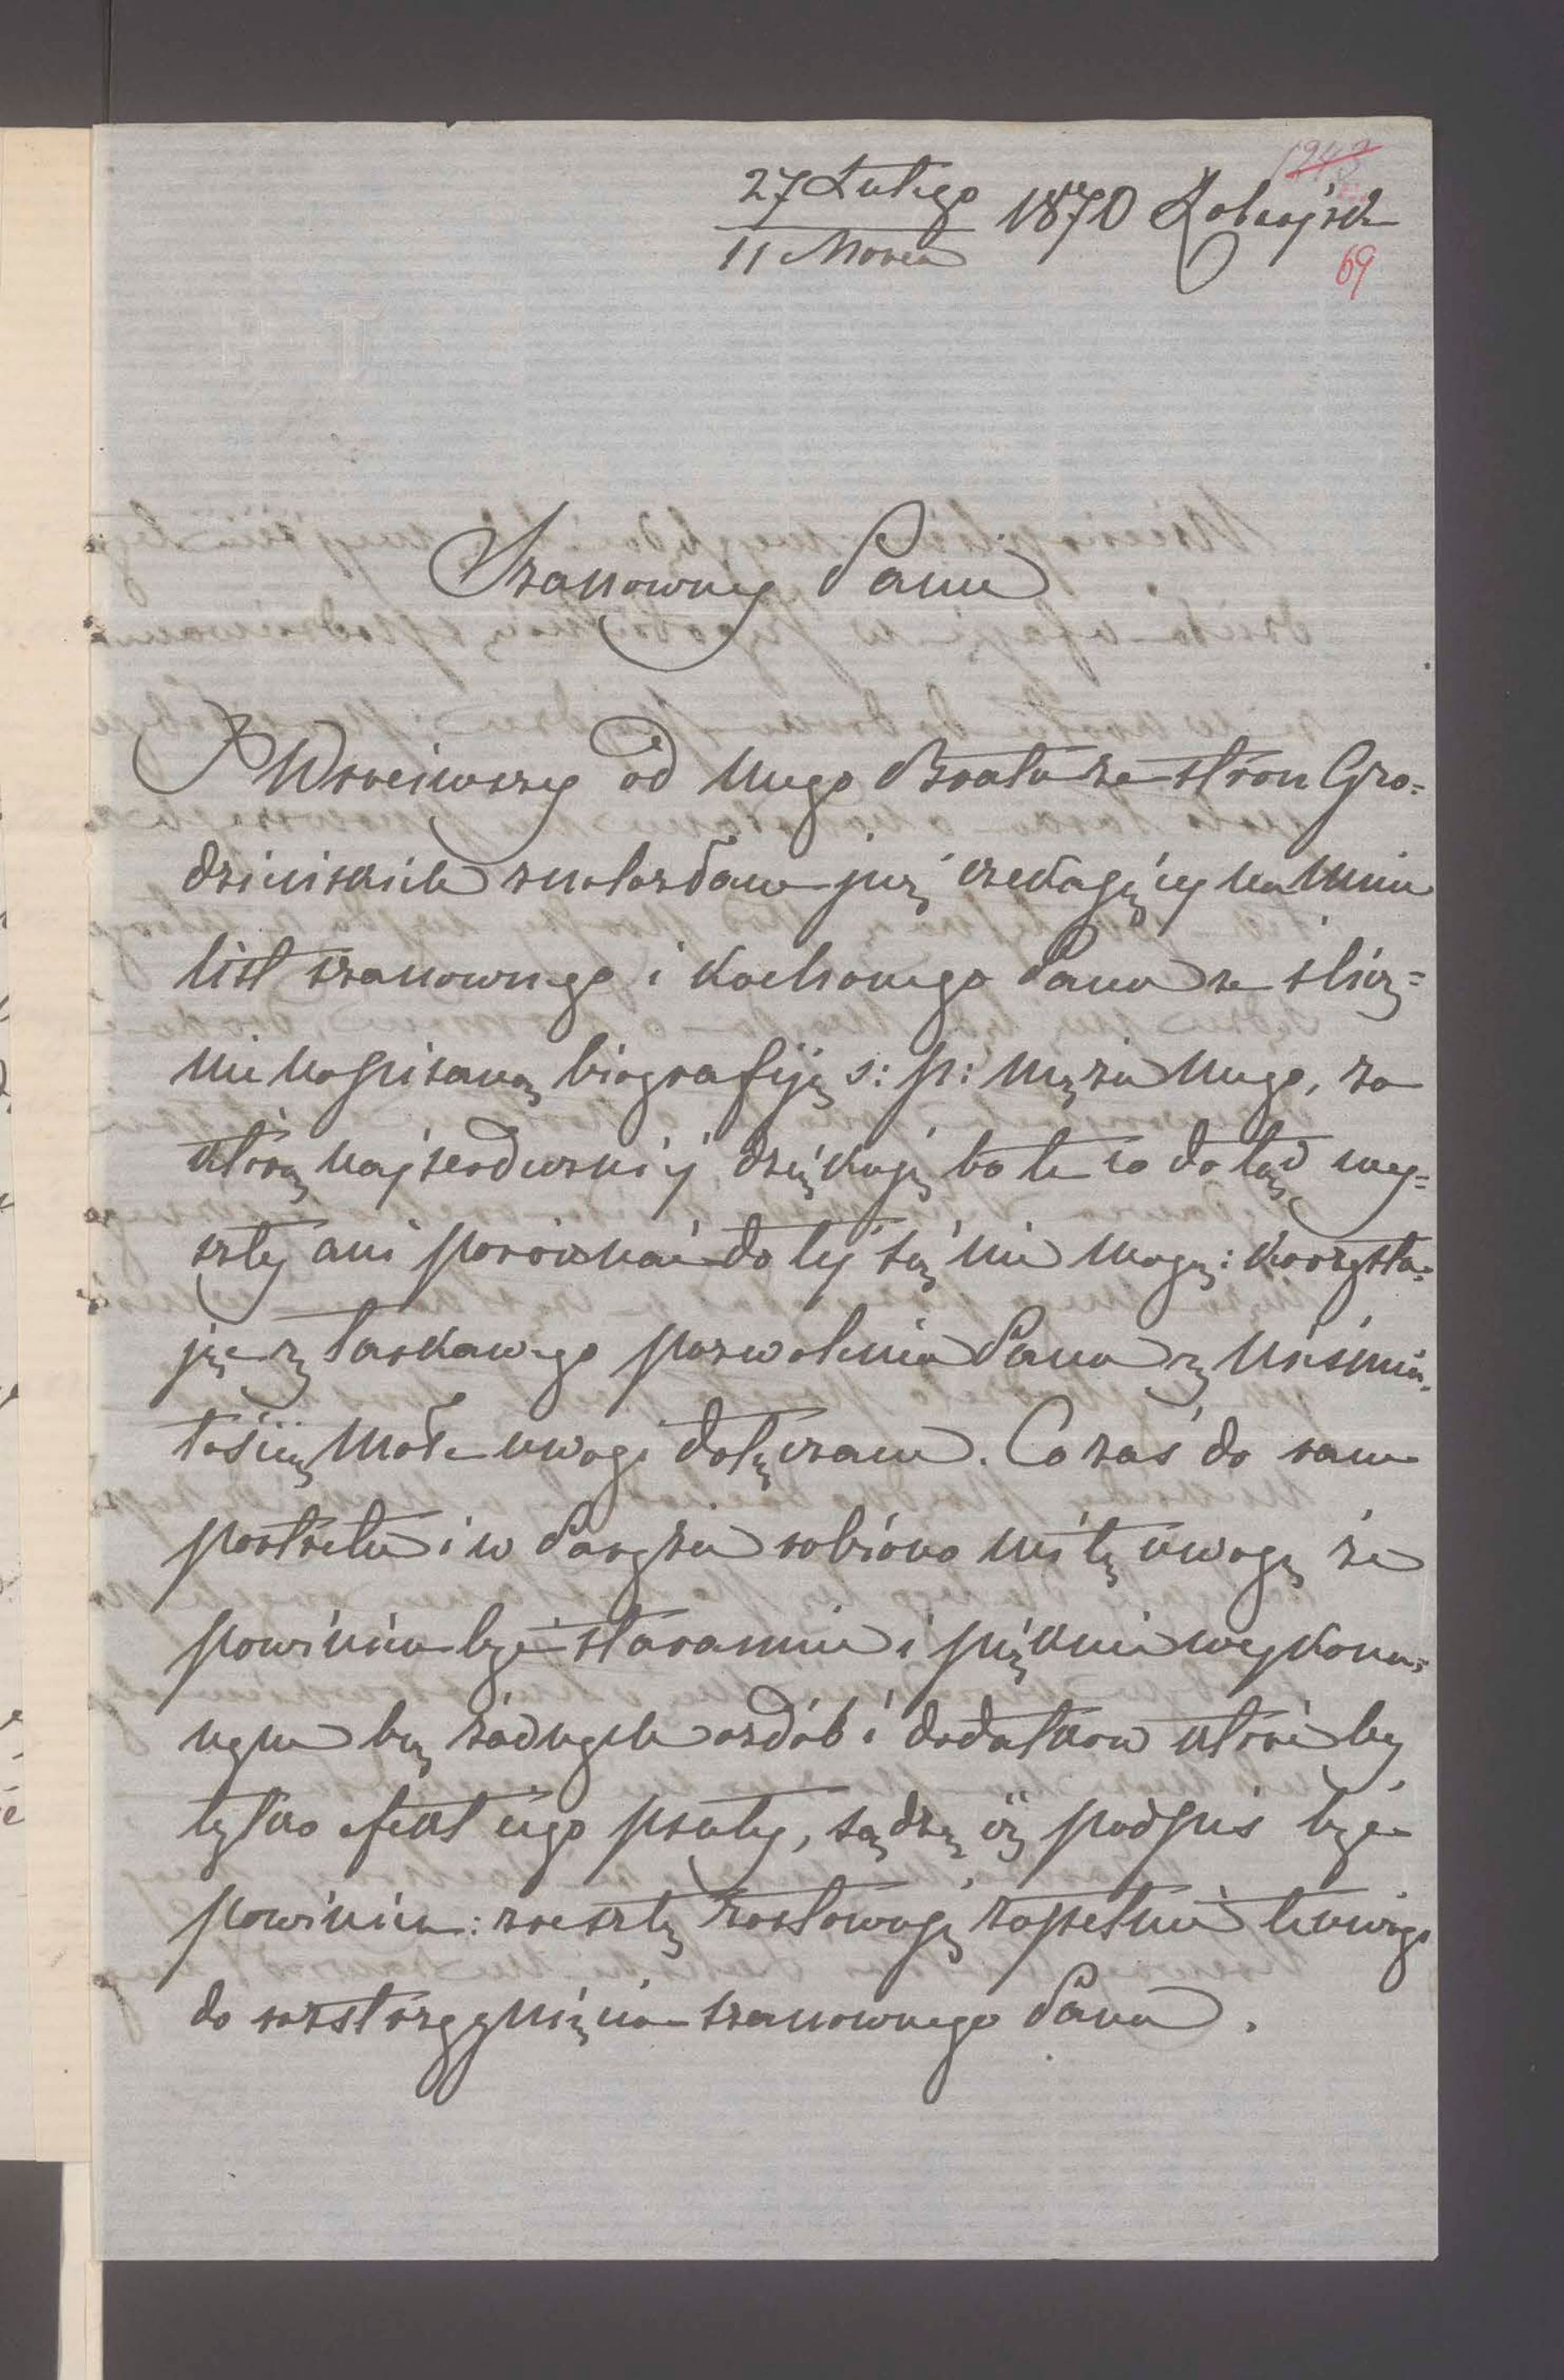 243
27 Lutego 1870 Łohojsk
11 Marca
69
Szanowny Panie
Wróciwszy od mego Brata ze stron Gro=
dzieńskich znalazłam już czekający na mnie
list szanownego i kochanego Pana ze ślicz=
nie napisaną biografiją s: p: męża mego, za
którą najserdeczniéj dziękuję bo te co dotąd wy=
szły ani porównać do téj się nie mogą: korzysta=
jąc z łaskawego pozwolenia Pana z nieśmia=
łością małe uwagi dołączam. Co zaś do sam
portretu i w Paryżu robiono mi tę uwagę że
powinien być starannie i pięknie wykona=
nym bez żadnych ozdób i dodatkow które by
tylko efekt jego psuły, sądzę iż podpis być
powinien: zresztą zostawuję zupełnie te uwagi
do rozstrzygnięcia szanownego Pana.